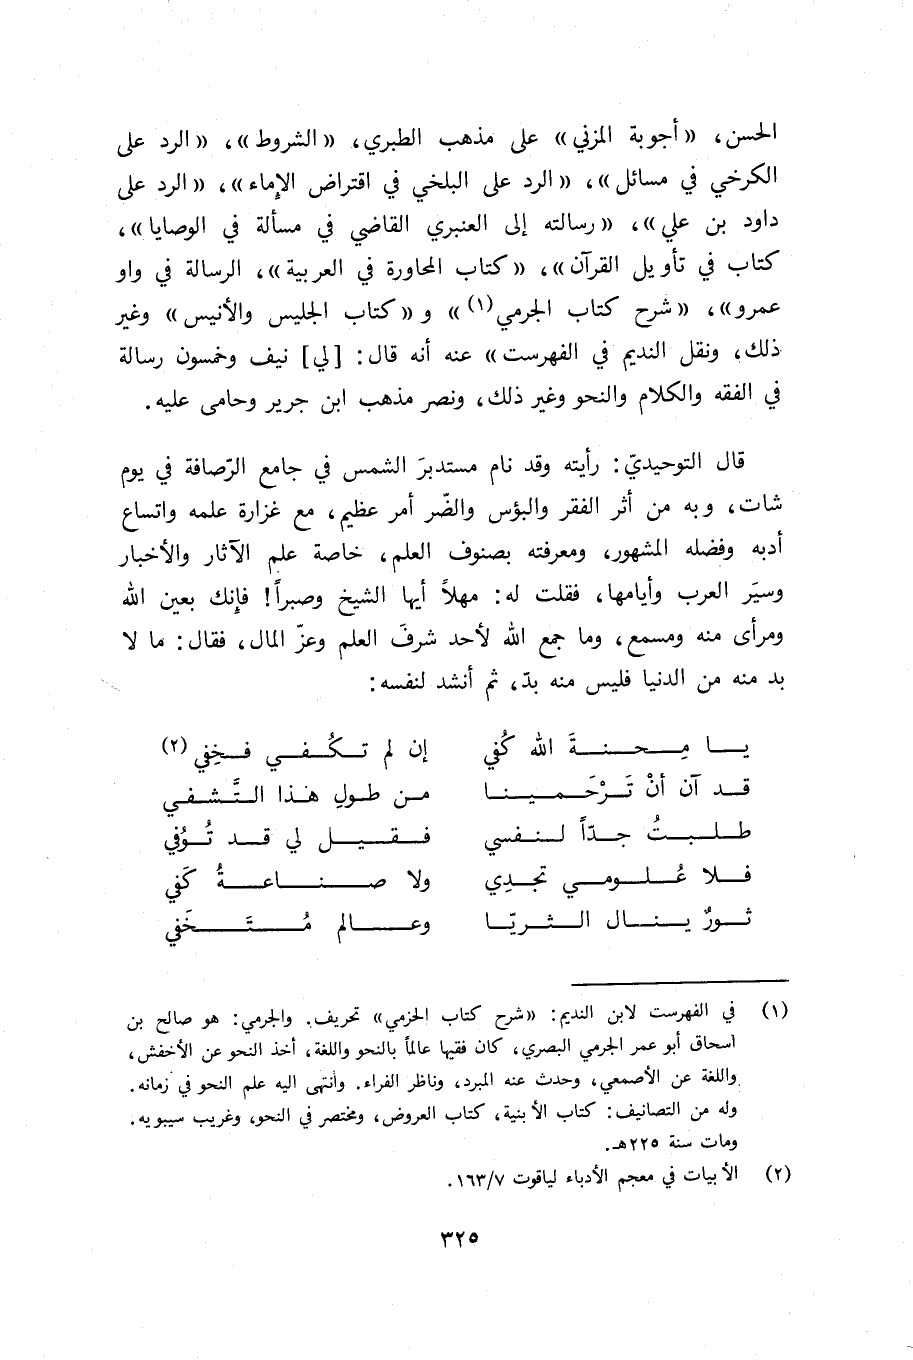 الحسن، «أجوبة المزني» على مذهب الطبري، «الشروط»، «الرد على
الكرخي في مسائل»، «الرد على البلخي في اقتراض الإماء»، «الرد على
داود بن علي»، «رسالته إلى العنبري القاضي في مسألة في الوصايا»،
كتاب في تأويل القرآن»، «كتاب المحاورة في العربية»، الرسالة في واو
عمرو»، «شرح كتاب الجرمي(١)» و«كتاب الجليس والأنيس» وغير
ذلك، ونقل النديم في الفهرست» عنه أنه قال: [لي] نيف وخمسون رسالة
في الفقه والكلام والنحو وغير ذلك، ونصر مذهب ابن جرير وحامى عليه.
قال التوحيديّ: رأيته وقد نام مستدبرَ الشمس في جامع الرّصافة في يوم
شات، وبه من أثر الفقر والبؤس والضّر أمر عظيم، مع غزارة علمه واتساع
أدبه وفضله المشهور، ومعرفته بصنوف العلم، خاصة علم الآثار والأخبار
وسيَر العرب وأيامها، فقلت له: مهلاً أيها الشيخ وصبراً! فإنك بعين الله
ومرأى منه ومسمع، وما جمع الله لأحد شرفَ العلم وعزّ المال، فقال: ما لا
بد منه من الدنيا فليس منه بدّ، ثم أنشد لنفسه:
يا مِحنةَ الله كُفي إن لم تكُفي فخِفي(٢)
قد آن أنْ تَرْحَمينا من طولِ هذا التَّشفي
طلبتُ جدّاً لنفسي فقيل لي قد تُوُفي
فلا عُلومي تجدِي ولا صناعةُ كَفي
ثورٌ ينال الثريّا وعالم مُتَخَفي
(١) في الفهرست لابن النديم: «شرح كتاب الحزمي» تحريف. والجرمي: هو صالح بن
اسحاق أبو عمر الجرمي البصري، كان فقيها عالماً بالنحو واللغة، أخذ النحو عن الأخفش،
واللغة عن الأصمعي، وحدث عنه المبرد، وناظر الفراء. وأنتهى اليه علم النحو في زمانه.
وله من التصانيف: كتاب الأبنية، كتاب العروض، ومختصر في النحو، وغريب سيبويه.
ومات سنة ٢٢٥هـ.
(٢) الأبيات في معجم الأدباء لياقوت ١٦٣/٧.
٣٢٥